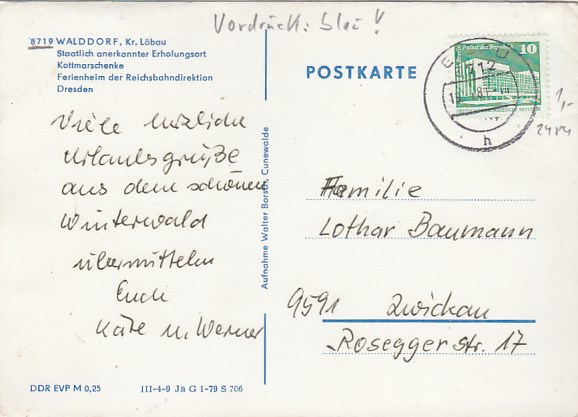 Vordruck: blau!
8719 WALDDORF, Kr. Löbau
Staatlich anerkannter Erholungsort
Kottmarschenke
Ferienheim der Reichsbahndirektion
Dresden
Viele herzliche
Urlaubsgrüße
aus dem schönen
Winterwald
übermitteln
Euch
Käte u. Werner
DDR EVP M 0,25
III-4-9 Ja G 1-79 S 706
Aufnahme Walter Borsch, Cunewalde
POSTKARTE
10
h
1,-
2484
Familie
Lothar Baumann
9591 Zwickau
Rosegger str. 17